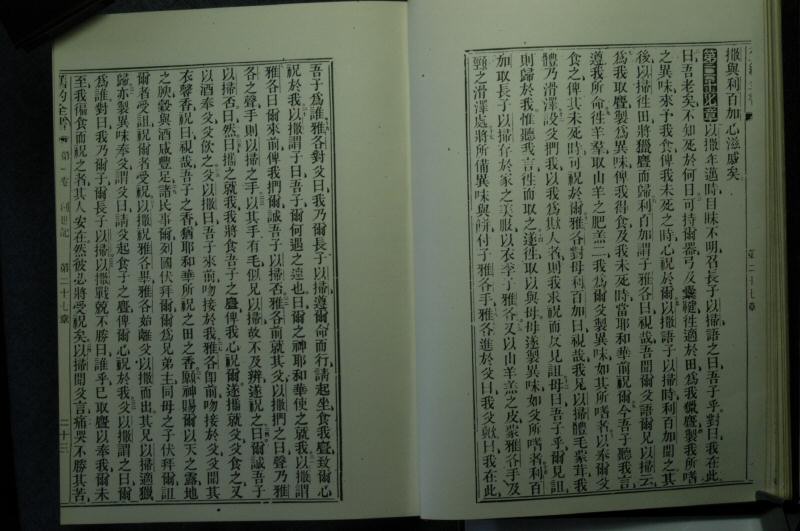 撒與利百加心滋慼矣
第二十七章 以撒年邁時目昧不明召長子以掃語之曰吾子乎對曰我在此
曰吾老矣不知死於何日可持爾器弓及櫜鞬徃適於田爲我獵麞製我所嗜
之異味來予我食俾我未死之時心祝於爾以撒語子以掃時利百加聞之其
後以掃徃田將獵麞而歸利百加謂子雅各曰視哉吾聞爾父語爾兄以掃云
爲我取麞製爲異味俾我得食及我未死時當耶和華前祝爾今吾子聽我言
遵我所命徃羊羣取山羊之肥羔二我爲爾父製異味如其所嗜者以奉爾父
食之俾其未死時可祝於爾雅各對母利百加曰視哉我兄以掃體毛蒙茸我
體乃滑澤設父捫我以我爲欺人者則我求祝而反見詛母曰吾子乎爾見詛
則歸於我惟聽我言徃而取之遂徃取以與母母遂製異味如父所嗜者利百
加取長子以掃存於家之美服以衣季子雅各又以山羊羔之皮蒙雅各手及
頸之滑澤處將所備異味與餅付子雅各手雅各進於父曰我父歟曰我在此
第二十七章
吾子爲誰雅各對父曰我乃爾長子以掃遵爾命而行請起坐食我麞致爾心
祝於我以撒謂子曰吾子爾何遇之速也曰爾之神耶和華使之就我以撒謂
雅各曰爾來前俾我捫爾誠吾子以掃否雅各前就其父以撒捫之曰聲乃雅
各之聲手則以掃之手以其手有毛似兄以掃故不及辨遂祝之曰爾誠吾子
以掃否曰然曰攜之就我我將食吾子之麞俾我心祝爾遂攜就父父食之又
以酒奉父父飲之父以撒曰吾子來前吻接於我雅各卽前吻接於父父聞其
衣馨香祝曰視哉吾子之香猶耶和華所祝之田之香願神賜爾以天之露地
之腴穀與酒咸豐足諸民事爾列國伏拜爾爾爲兄弟主同母之子伏拜爾詛
爾者受詛祝爾者受祝以撒祝雅各畢雅各始離父以撒而出其兄以掃適獵
歸亦製異味奉父謂父曰請父起食子之麞俾爾心祝於我父以撒謂之曰爾
爲誰對曰我乃爾子爾長子以掃以撒戰兢不勝曰誰乎已取麞以奉我爾未
至我徧食而祝之者其人安在然彼必將受祝矣以掃聞父言痛哭不勝其苦
舊約全書 第一卷 創世記 第二十七章 二十三